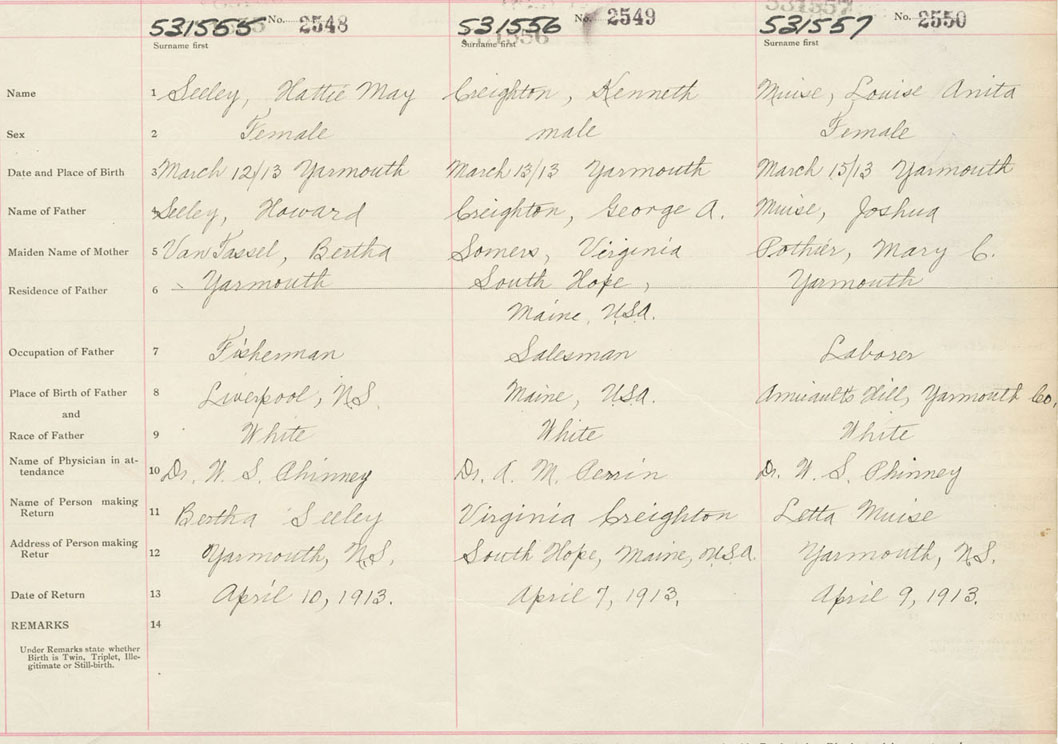 531555 No. 2548 531556 No. 2549 531557 No. 2550
Surname first Surname first Surname first
Name 1 Seeley, Hattie May Creighton, Kenneth Muise, Louise Anita
Sex 2 Female male Female
Date and Place of Birth 3 March 12/13 Yarmouth March 13/13 Yarmouth March 15/13 Yarmouth
Name of Father Seeley, Howard Creighton, George A. Muise, Joshua
Maiden Name of Mother 5 VanTassel, Bertha Somers, Virginia Pothier, Mary C.
Residence of Father 6 Yarmouth South Hope, Yarmouth
Maine, USA.
Occupation of Father 7 Fisherman Salesman Laborer
Place of Birth of Father 8 Liverpool, NS. Maine, USA. Amiraults Hill, Yarmouth Co.
and
Race of Father 9 White White White
Name of Physician in at-
tendance 10 Dr. W. S. Phinney Dr. A. M. Perrin Dr. W. S. Phinney
Name of Person making
Return 11 Bertha Seeley Virginia Creighton Letta Muise
Address of Person making
Retur 12 Yarmouth, NS. South Hope, Maine, USA Yarmouth, NS.
Date of Return 13 April 10, 1913. April 7, 1913. April 9, 1913.
REMARKS 14
Under Remarks state whether
Birth is Twin, Triplet, Ille-
gitimate or Still-birth.